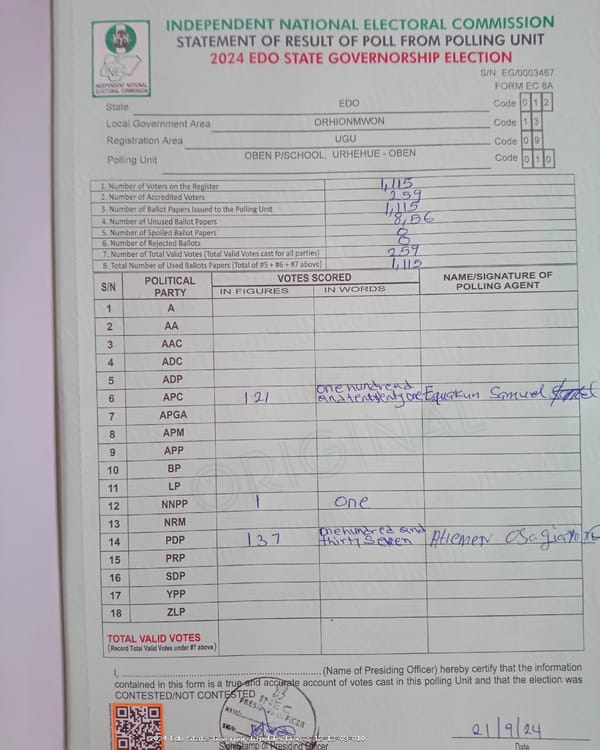 INDEPENDENT NATIONAL ELECTORAL COMMISSION
STATEMENT OF RESULT OF POLL FROM POLLING UNIT
2024 EDO STATE GOVERNORSHIP ELECTION
INEC
INDEPENDENT NATIONAL
ELECTORAL COMMISSION
S/N: EG/0003467
FORM EC 8A
State EDO Code 0 1 2
Local Government Area ORHIONMWON Code 1 3
Registration Area UGU Code 0 9
Polling Unit OBEN P/SCHOOL, URHEHUE - OBEN Code 0 1 0
1. Number of Voters on the Register 1,115
2. Number of Accredited Voters 259
3. Number of Ballot Papers Issued to the Polling Unit 1,115
4. Number of Unused Ballot Papers 8,56
5. Number of Spoiled Ballot Papers 0
6. Number of Rejected Ballots 0
7. Number of Total Valid Votes (Total Valid Votes cast for all parties) 259
8. Total Number of Used Ballots Papers (Total of #5 + #6 + #7 above) 1,115
S/N POLITICAL PARTY VOTES SCORED NAME/SIGNATURE OF POLLING AGENT
IN FIGURES IN WORDS
1 A
2 AA
3 AAC
4 ADC
5 ADP
6 APC 121 one hundread and twenty one Equakun Samuel
7 APGA
8 APM
9 APP
10 BP
11 LP
12 NNPP 1 one
13 NRM
14 PDP 137 one hundred and thirty Seven
15 PRP
16 SDP
17 YPP
18 ZLP
ORIGINAL
TOTAL VALID VOTES
(Record Total Valid Votes under #7 above)
I, (Name of Presiding Officer) hereby certify that the information
contained in this form is a true and accurate account of votes cast in this polling Unit and that the election was
CONTESTED/NOT CONTESTED
INEC
PRESIDING OFFICER
21/9/24
Sign/Stamp of Presiding Officer Date